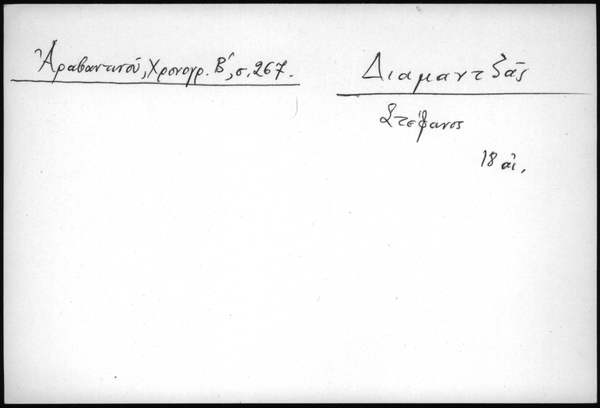 Ἀραβαντινοῦ, Χρονογρ. Β΄, σ. 267.
Διαμαντζᾶς
Στέφανος
18 αἰ.